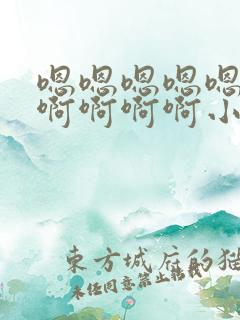 嗯嗯嗯嗯嗯
啊啊啊啊小
东方城府的猫
未经同意禁止转载